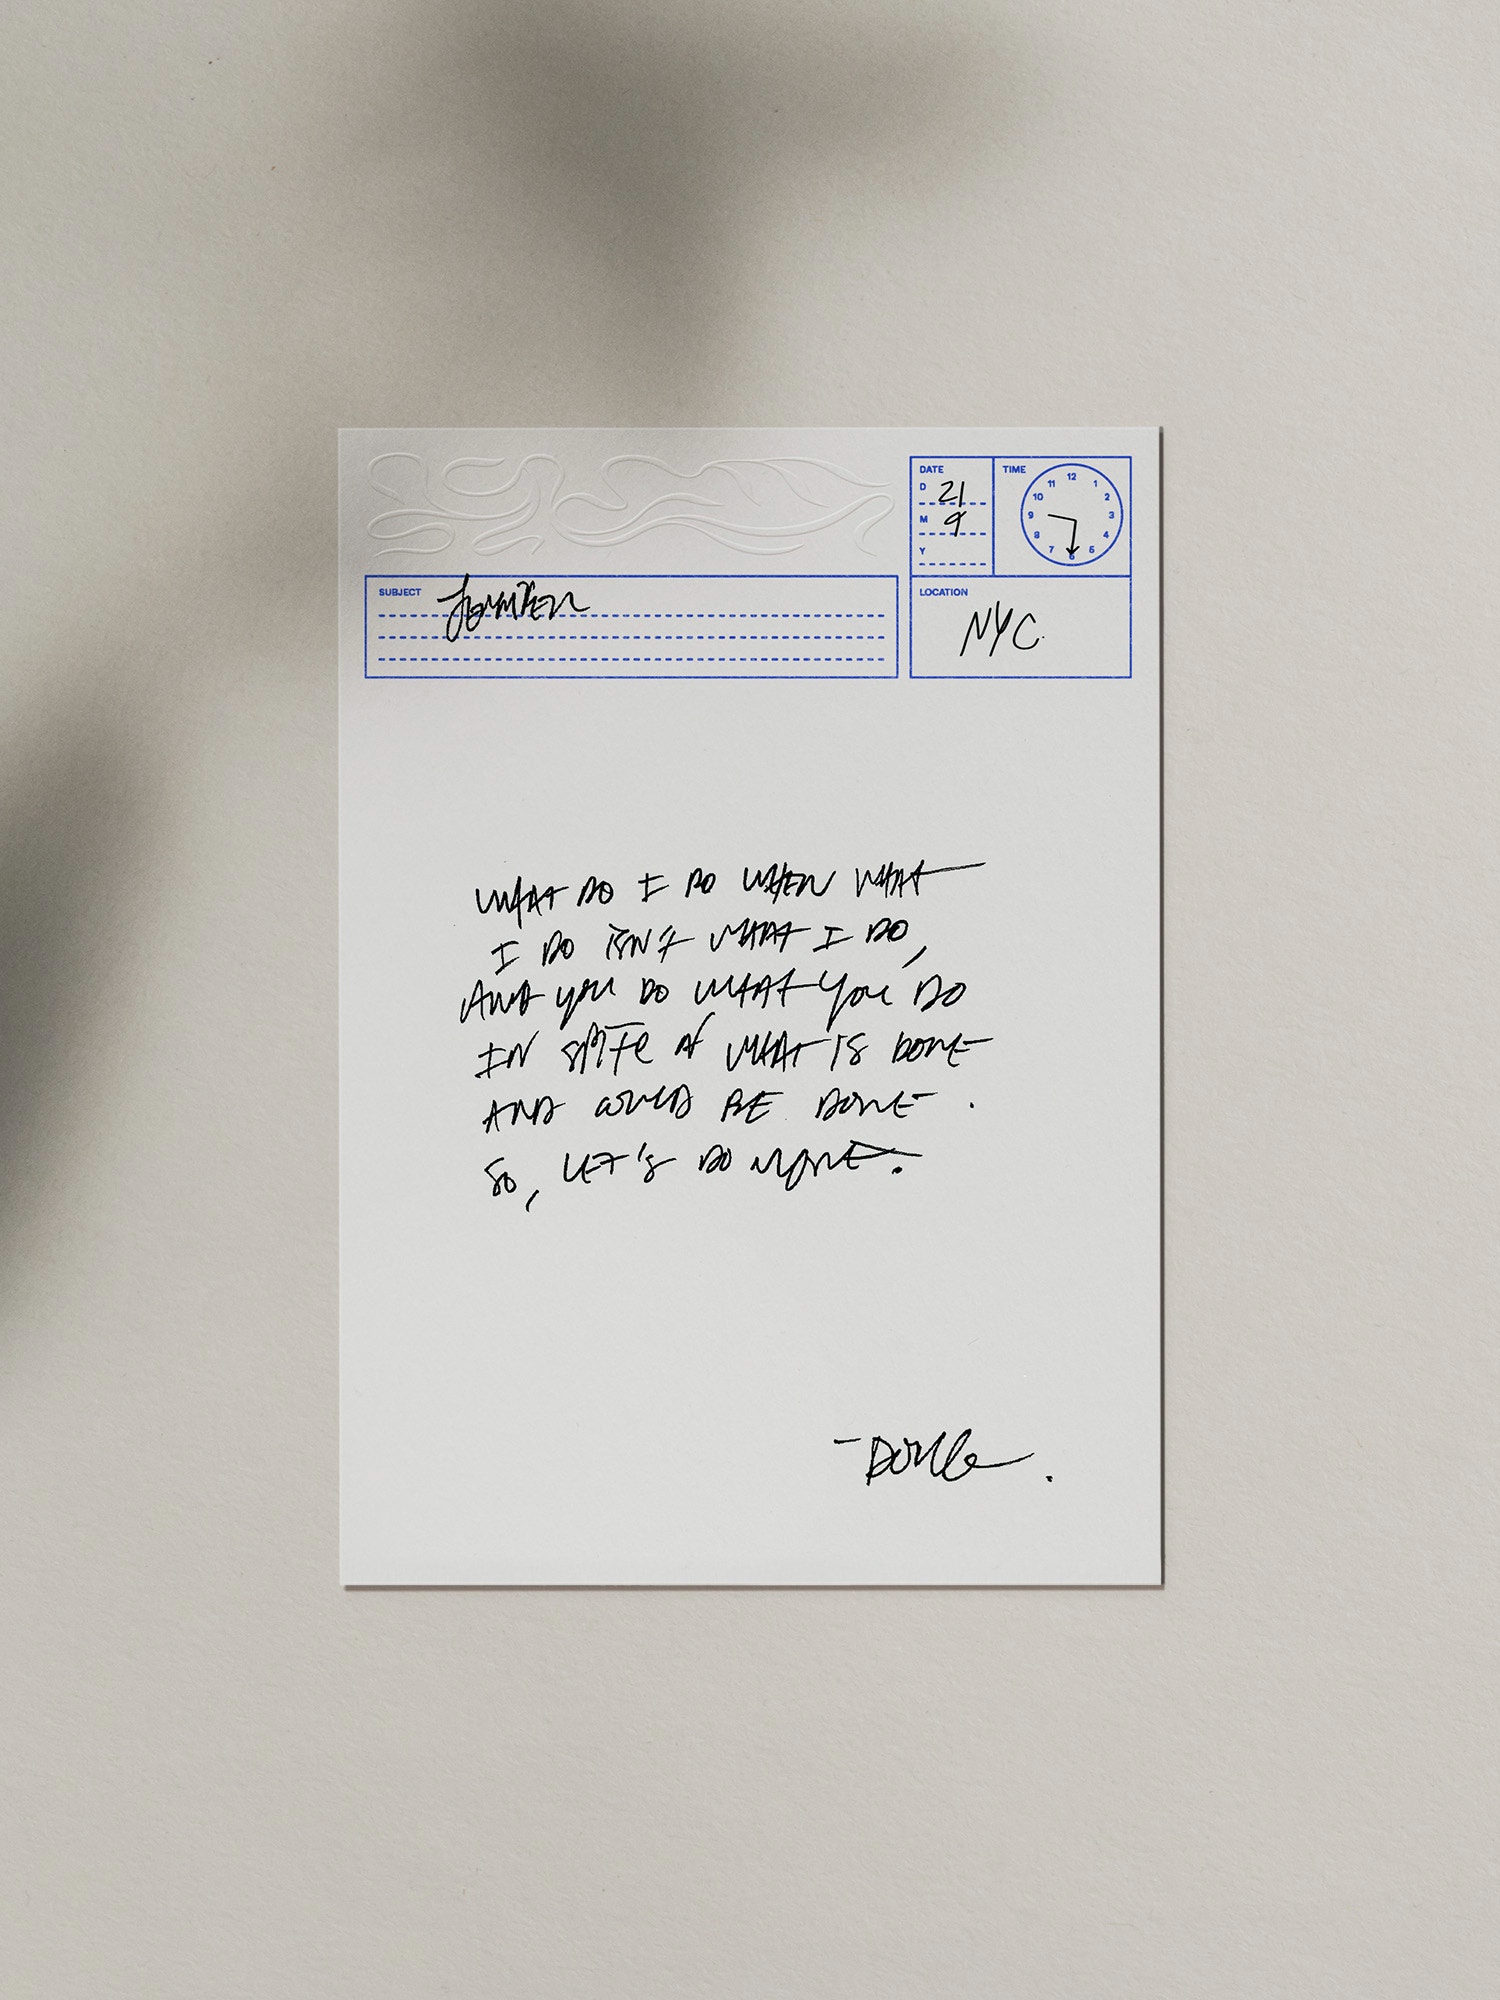 DATE
D 21
M 9
Y
TIME
12
11 1
10 2
9 3
8 4
7 5
6
SUBJECT Jennifer
LOCATION
NYC.
WHAT DO I DO WHEN WHAT
I DO ISN'T WHAT I DO,
AND YOU DO WHAT YOU DO
IN SPITE OF WHAT IS DONE
AND COULD BE DONE.
SO, LET'S DO MORE.